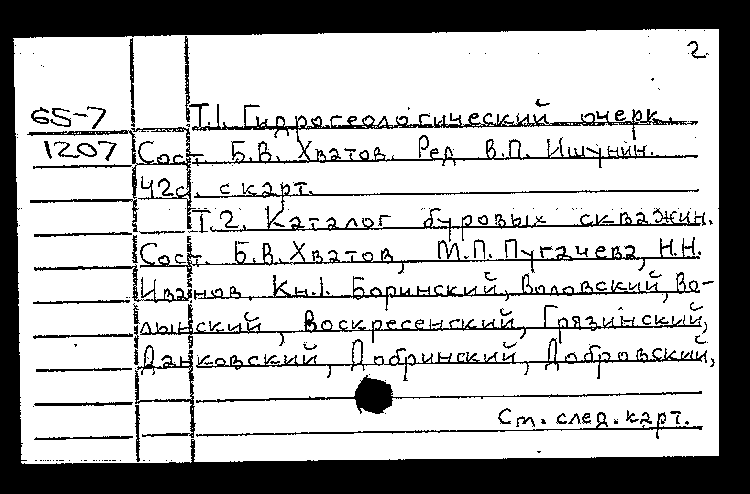 2.
65-7 Т.1. Гидрогеологический очерк.
1207 Сост. Б.В. Хватов. Ред В.П. Ишунин.
42с. с карт.
Т.2. Каталог буровых скважин.
Сост. Б.В. Хватов, М.П. Пугачева, Н.Н.
Иванов. Кн.1. Боринский, Воловский, Во-
лынский, Воскресенский, Грязинский,
Данковский, Добринский, Добровский,
См. след. карт.